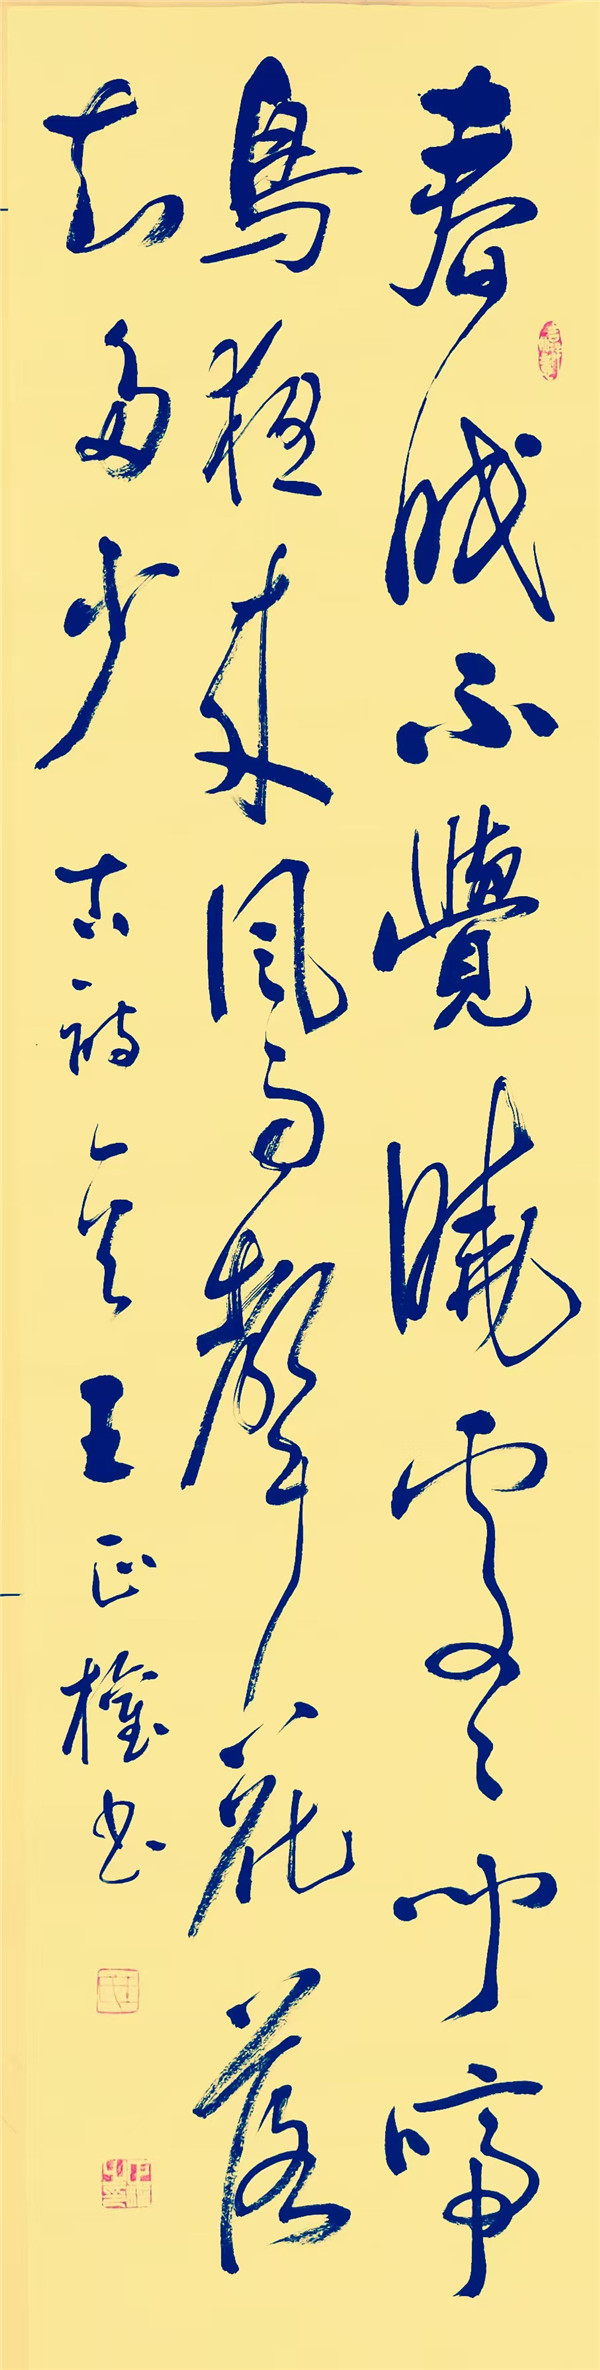 春眠不覺曉處々聞啼
鳥夜来風雨聲花落
知多少 古詩 王正權书